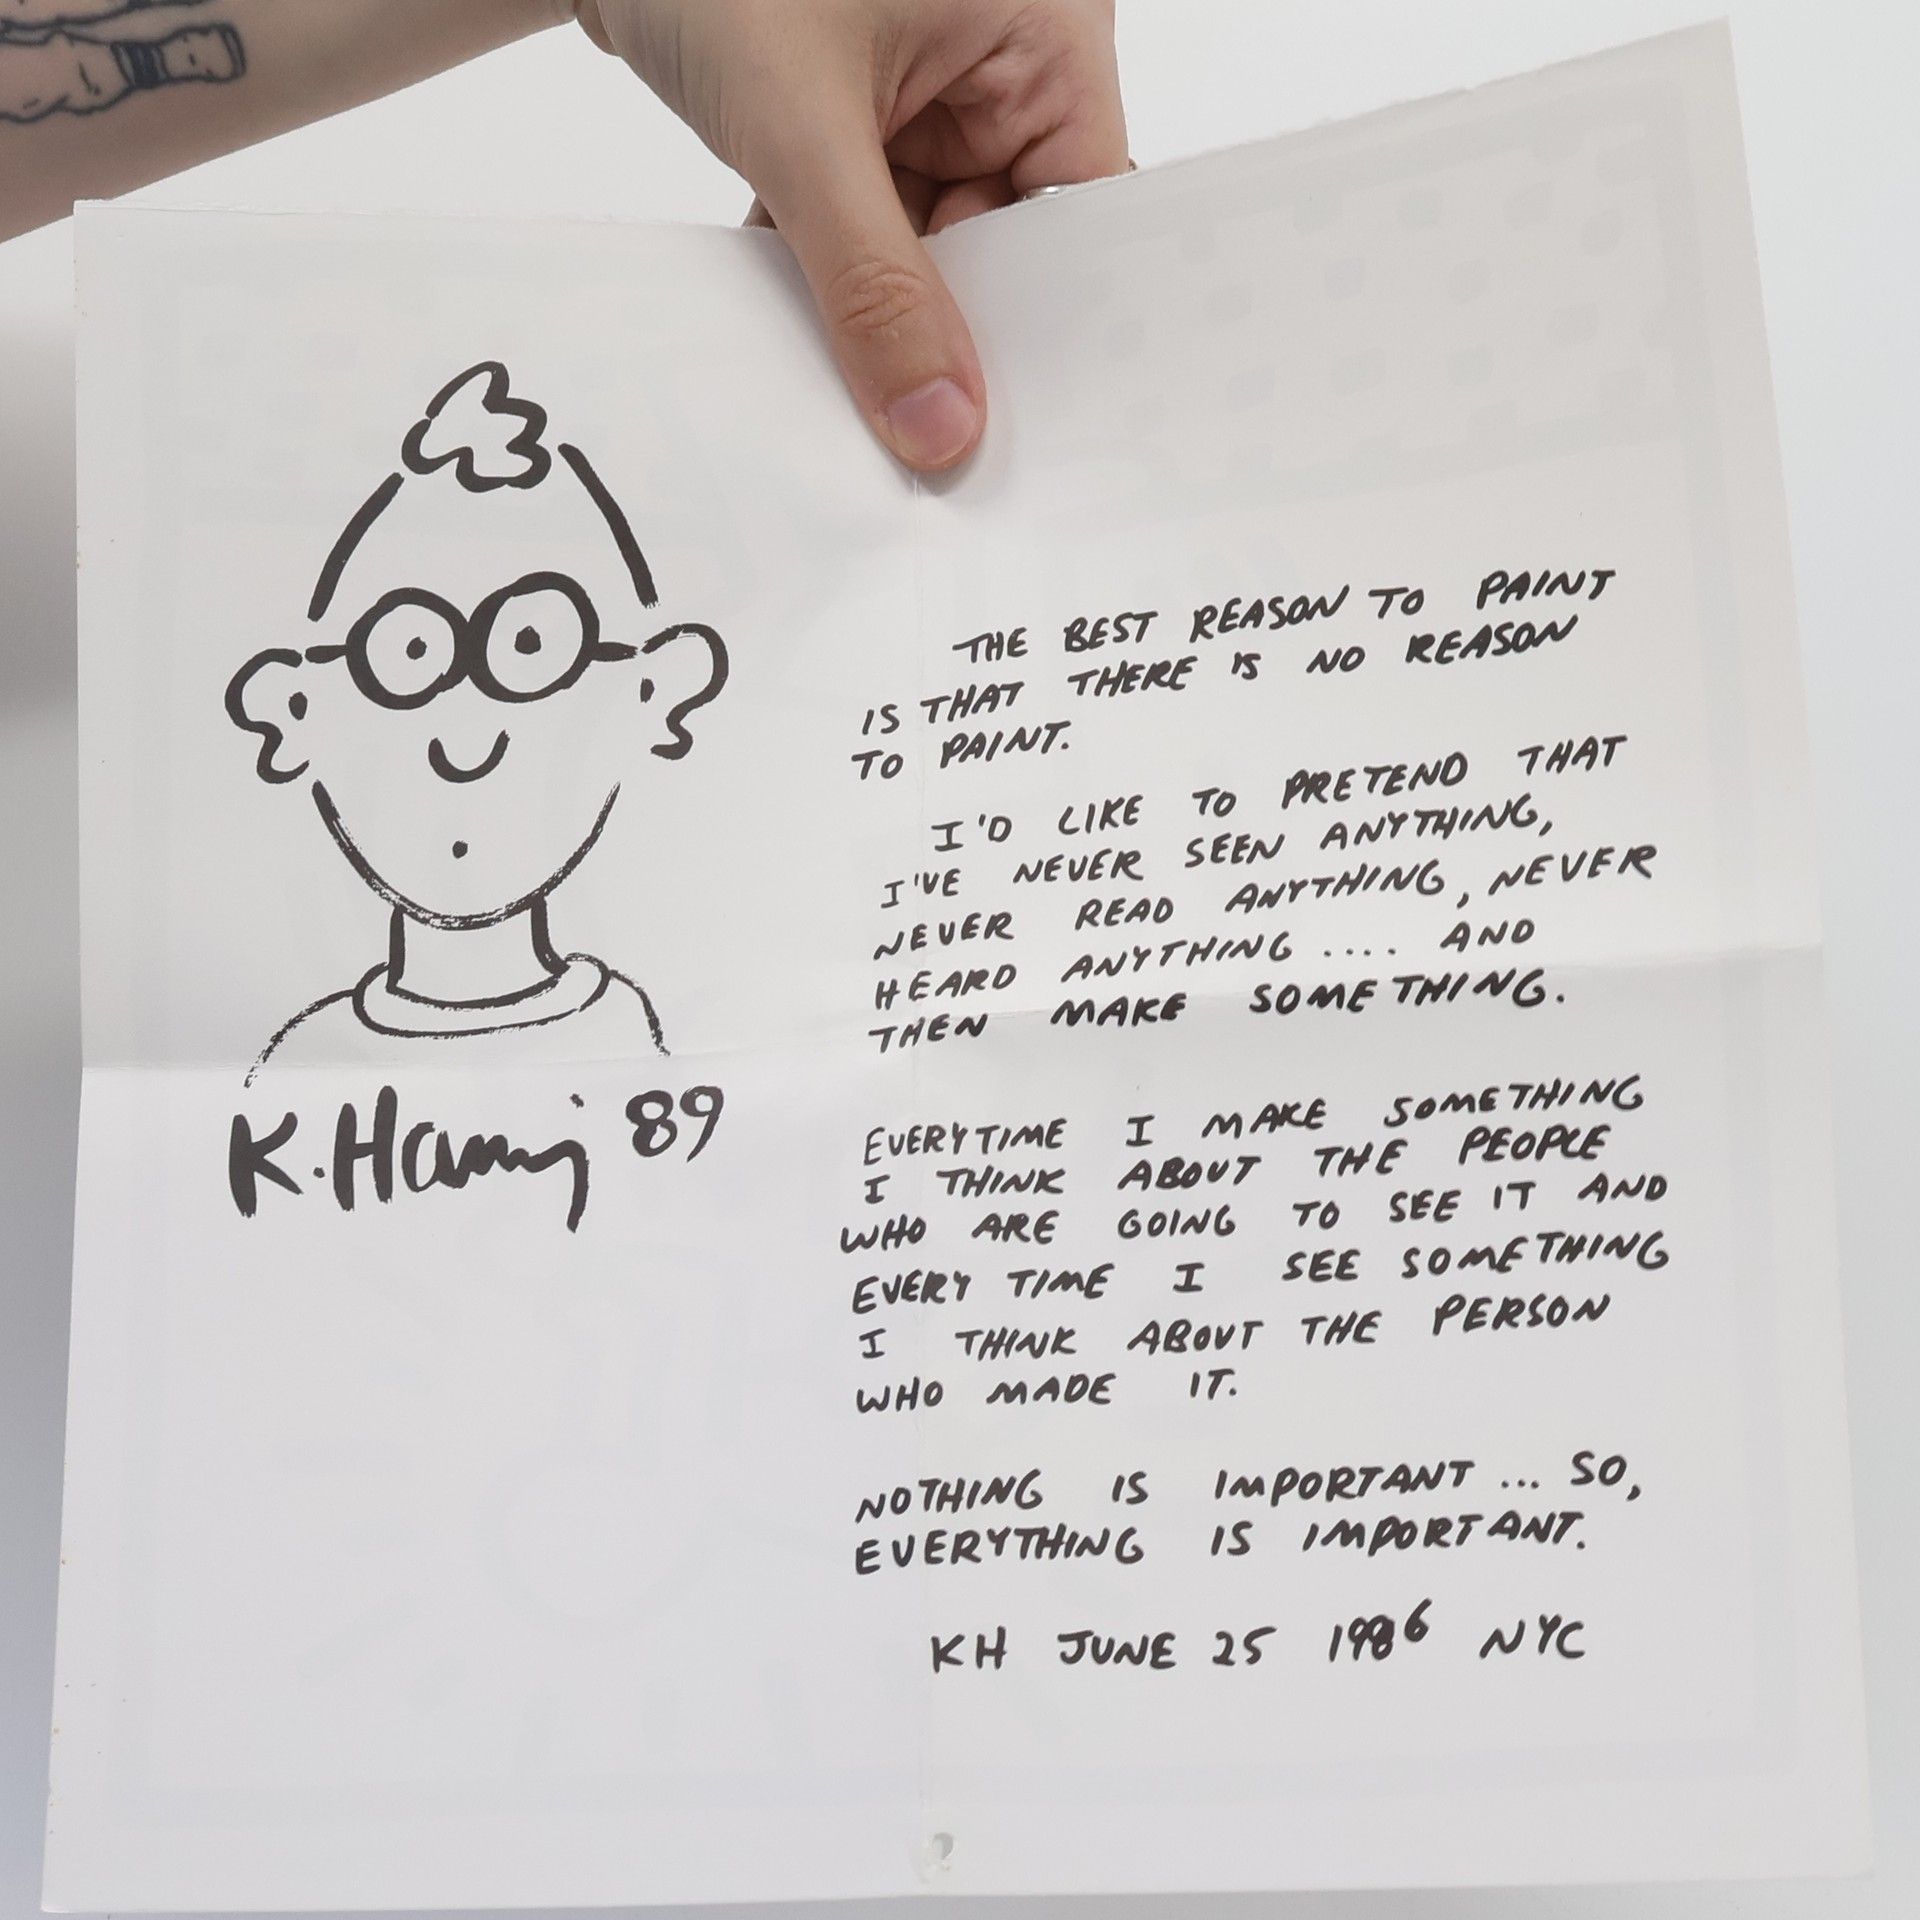 K. Haring 89
THE BEST REASON TO PAINT
IS THAT THERE IS NO REASON
TO PAINT.
I'D LIKE TO PRETEND THAT
I'VE NEVER SEEN ANYTHING,
NEVER READ ANYTHING, NEVER
HEARD ANYTHING .... AND
THEN MAKE SOMETHING.
EVERYTIME I MAKE SOMETHING
I THINK ABOUT THE PEOPLE
WHO ARE GOING TO SEE IT AND
EVERY TIME I SEE SOMETHING
I THINK ABOUT THE PERSON
WHO MADE IT.
NOTHING IS IMPORTANT ... SO,
EVERYTHING IS IMPORTANT.
KH JUNE 25 1986 NYC